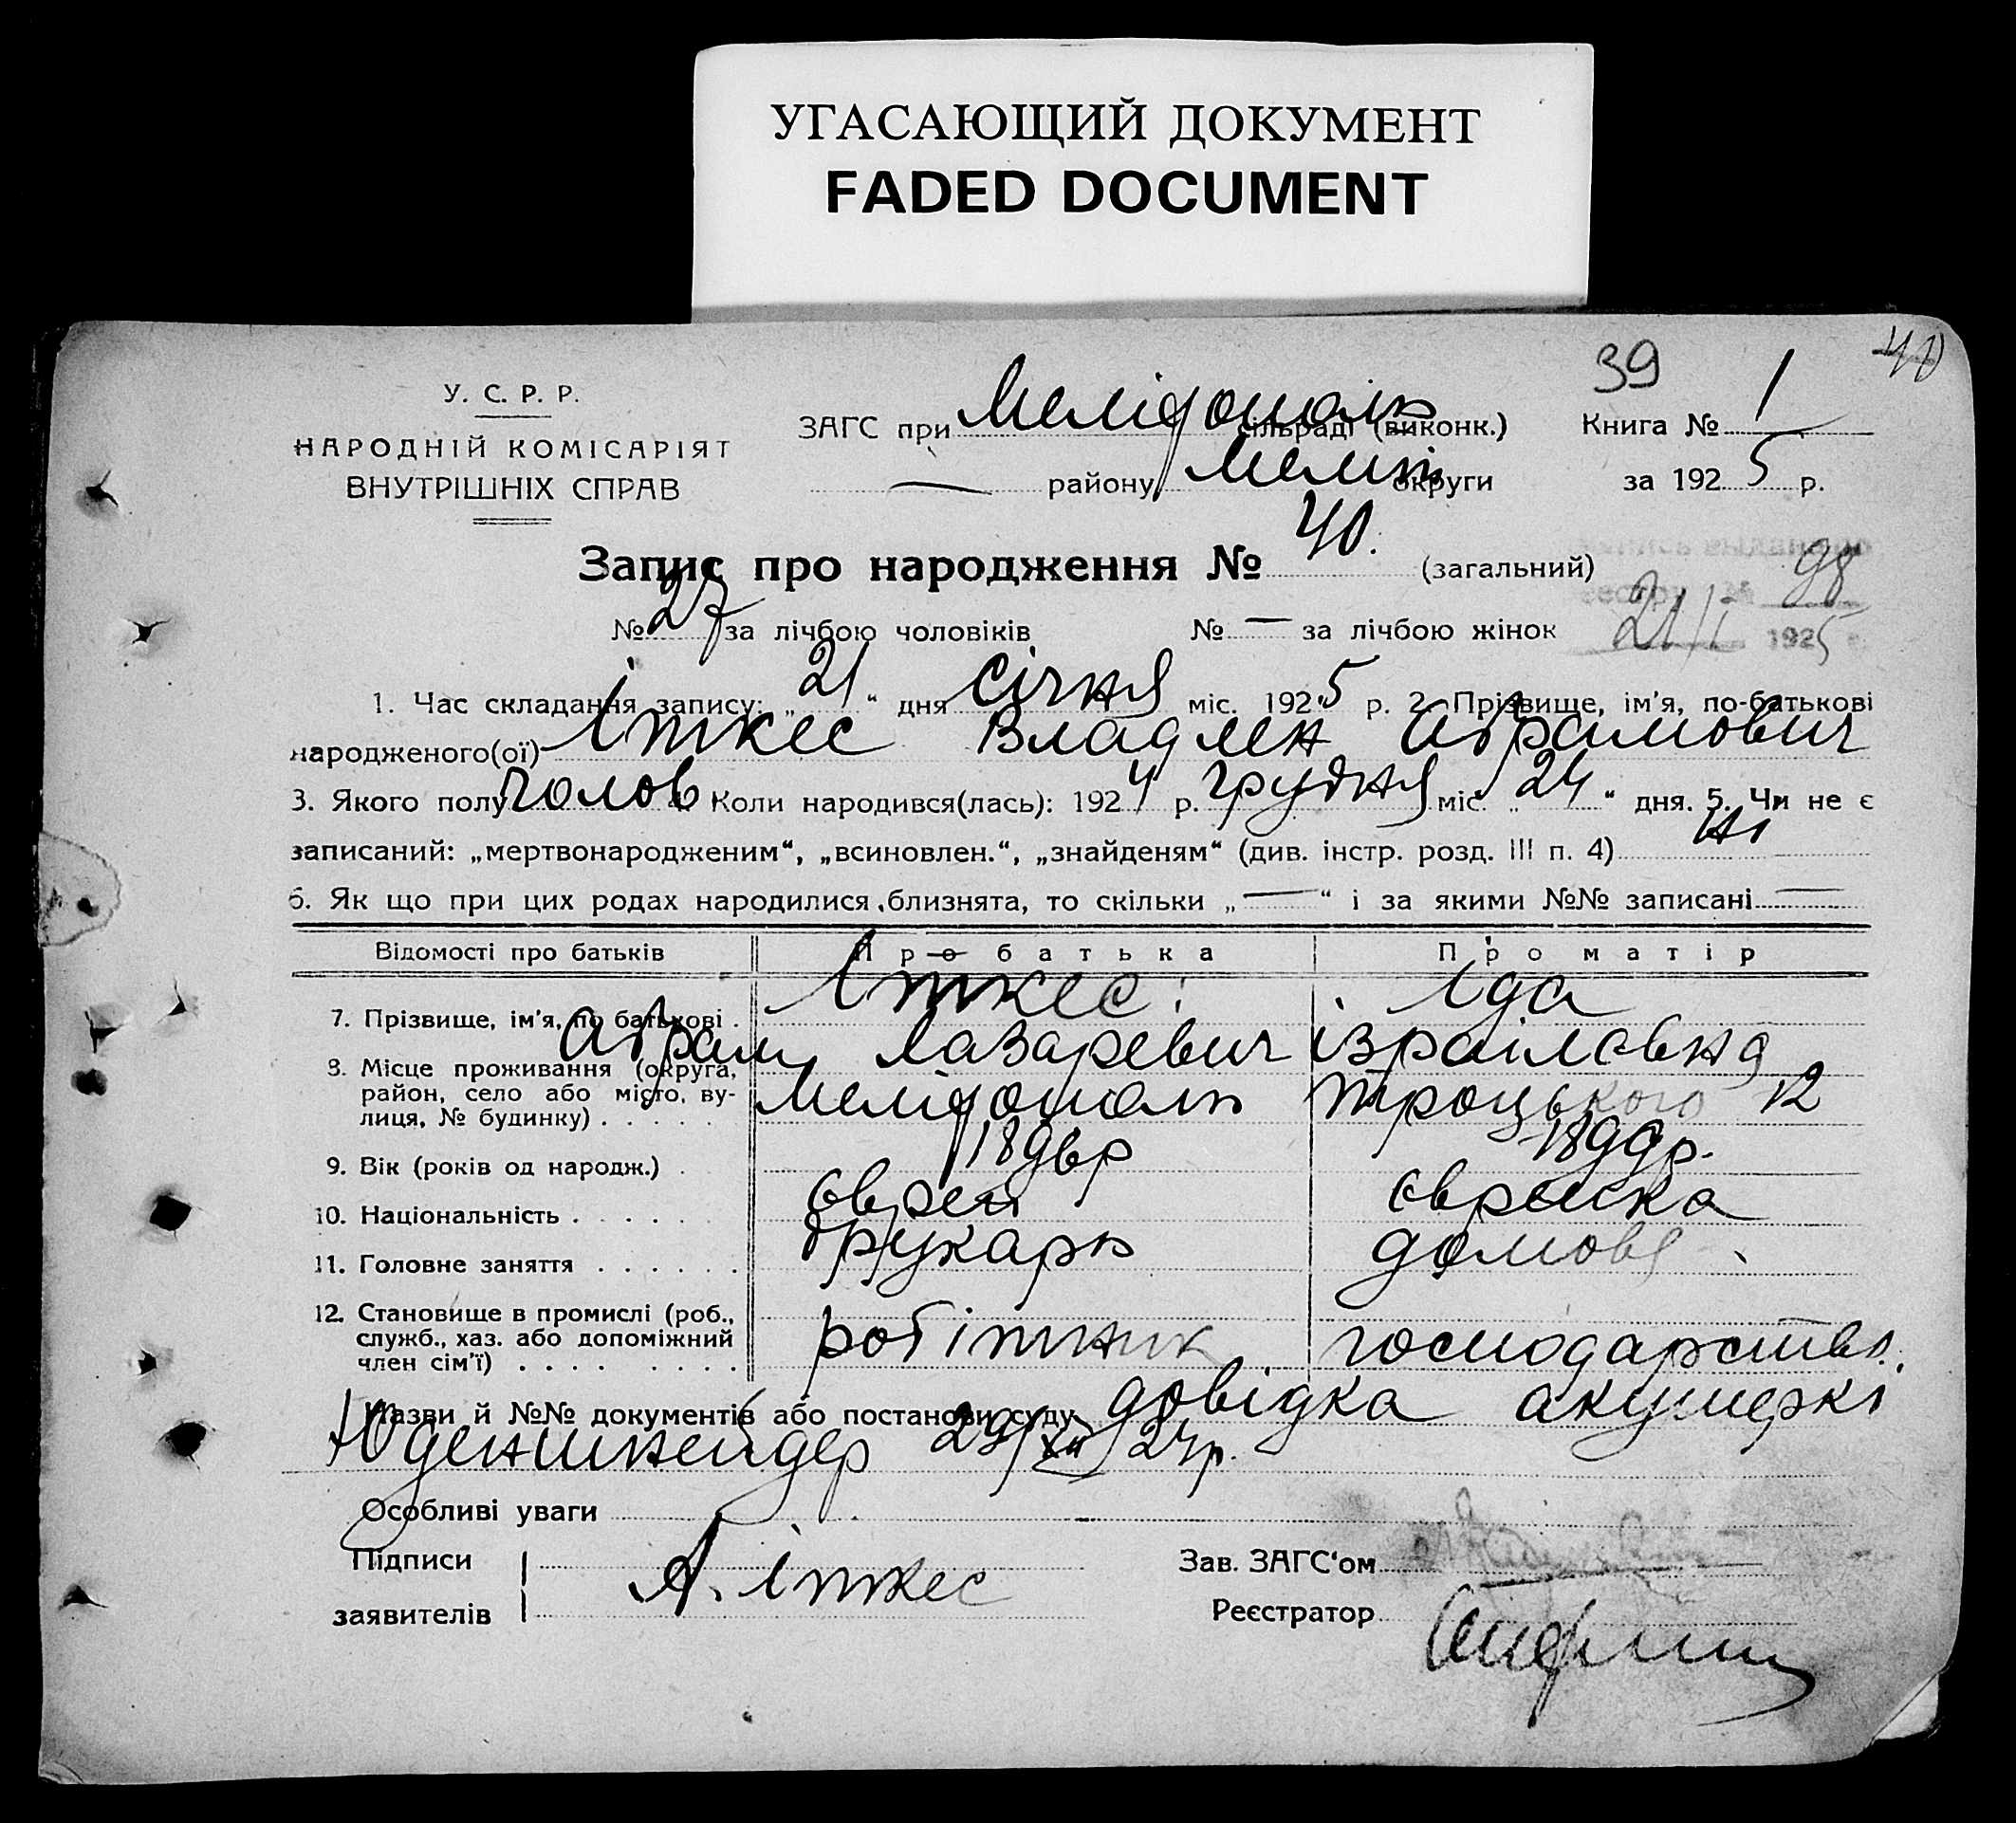 УГАСАЮЩИЙ ДОКУМЕНТ
FADED DOCUMENT
39
40
У. С. Р. Р.
НАРОДНІЙ КОМІСАРІЯТ
ВНУТРІШНІХ СПРАВ
ЗАГС при Мелітополь сільраді (виконк.)
— району Меліт округи
Книга № 1
за 1925 р.
Запис про народження № 40. (загальний)
98
№ 27 за лічбою чоловіків № — за лічбою жінок
21/I 1925
1. Час складання запису: „21“ дня січня міс. 1925 р. 2. Прізвище, ім'я, по-батькові
народженого(ої) Іткес Владлен Абрамович
3. Якого полу чолов 4. Коли народився(лась): 1924 р. грудня міс. „24“ дня. 5. Чи не є
записаний: „мертвонародженим“, „всиновлен.“, „знайденям“ (див. інстр. розд. III п. 4) ні
6. Як що при цих родах народилися близнята, то скільки „—“ і за якими №№ записані —
Відомості про батьків Про батька Про матір
7. Прізвище, ім'я, по батькові . Іткес Іда
Абрам Лазаревич Ізраілєвна
8. Місце проживання (округа,
район, село або місто, ву-
лиця, № будинку) . . . . . Мелітополь Троцького 12
9. Вік (років од народж.) . 189 р 1899р.
10. Національність . . . . . . єврей єврейка
11. Головне заняття . . . . . . друкарь домове
12. Становище в промислі (роб.,
служб., хаз. або допоміжний
член сім'ї) . . . . . . . . робітник господарство.
Назви й №№ документів або постанови суду довідка акушеркі
Юденшнейдер 29/XII 24р.
Особливі уваги —
Підписи
заявителів А. Іткес
Зав. ЗАГС'ом
Реєстратор